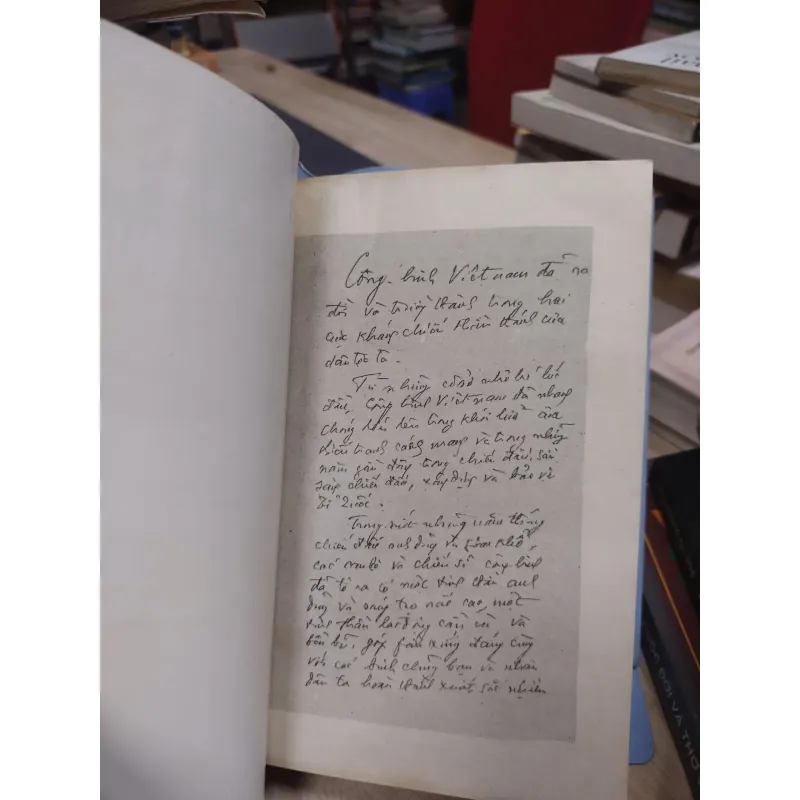 Công binh Việt nam đã ra
đời và trưởng thành trong hai
cuộc kháng chiến thần thánh của
dân tộc ta.
Từ những cơ sở nhỏ bé lúc
đầu, Công binh Việt nam đã nhanh
chóng lớn lên trong khói lửa của
chiến tranh cách mạng và trong những
năm gần đây trong chiến đấu, sẵn
sàng chiến đấu, xây dựng và bảo vệ
Tổ Quốc.
Trong suốt những năm tháng
chiến đấu anh dũng và gian khổ,
các cán bộ và chiến sĩ công binh
đã tỏ ra có một tinh thần anh
dũng và sáng tạo rất cao, một
tinh thần lao động cần cù và
bền bỉ, góp phần xứng đáng cùng
với các binh chủng bạn và nhân
dân ta hoàn thành xuất sắc nhiệm
ĐỜI VÀ THƠ